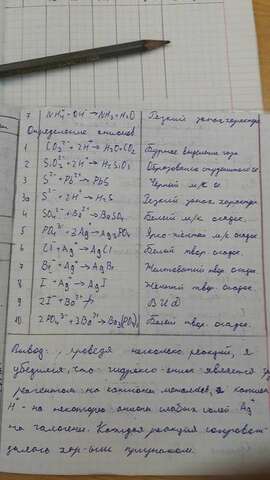 7 NH₄⁺ + OH⁻ → NH₃ + H₂O Резкий запах характер
Определение анионов
1 CO₃²⁻ + 2H⁺ → H₂O + CO₂ Бурное выделение газа
2 SiO₃²⁻ + 2H⁺ → H₂SiO₃ Образование студенистого ос.
3 S²⁻ + Pb²⁺ → PbS Черный м/к ос
3а S²⁻ + 2H⁺ → H₂S Резкий запах характер
4 SO₄²⁻ + Ba²⁺ → BaSO₄ Белый м/к осадок.
5 PO₄³⁻ + 3Ag → Ag₃PO₄ Ярко-жёлтый м/к осадок
6 Cl⁻ + Ag⁺ → AgCl Белый твор. осадок.
7 Br⁻ + Ag⁺ → AgBr Желтоватый твор. осадок.
8 I⁻ + Ag⁺ → AgI Желтый твор. осадок.
9 2I⁻ + Ba²⁺
10 2PO₄³⁻ + 3Ba²⁺ → Ba₃(PO₄) Белый твор. осадок.
Вывод: проведя несколько реакций, я
убедился, что гидрокс-анион является
реагентом на катионы металлов, а катион
H⁺ - на некоторые анионы слабых солей Ag⁺
на галогены. Каждая реакция сопровож
далась хар-ным признаком.